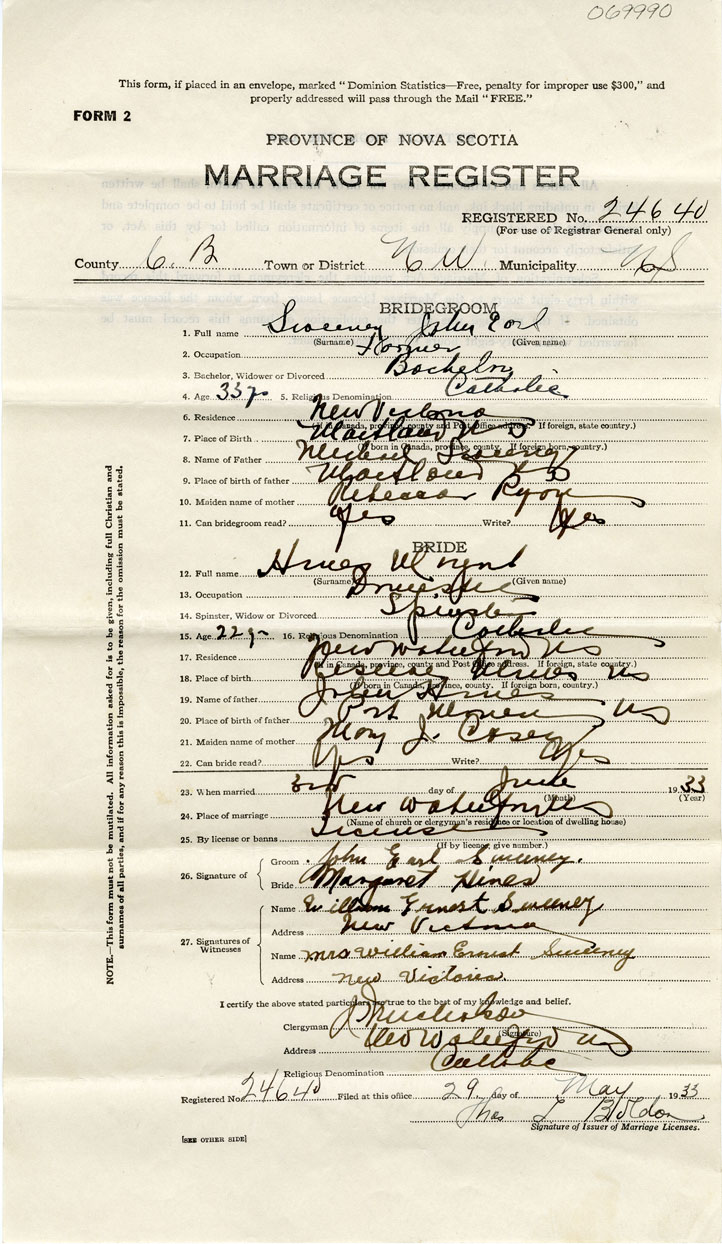 069990
This form, if placed in an envelope, marked "Dominion Statistics—Free, penalty for improper use $300," and
properly addressed will pass through the Mail "FREE."
FORM 2
PROVINCE OF NOVA SCOTIA
MARRIAGE REGISTER
REGISTERED No. 24640
(For use of Registrar General only)
County C. B Town or District N W Municipality NS
BRIDEGROOM
1. Full name Sweeney John Earl
(Surname) (Given name)
2. Occupation Farmer
3. Bachelor, Widower or Divorced Bachelor
4. Age 33 yrs 5. Religious Denomination Catholic
6. Residence New Victoria
(If in Canada, province, county and Post Office address. If foreign, state country.)
7. Place of Birth Maitland N S
(If born in Canada, province, county. If foreign born, country.)
8. Name of Father Michael Sweeney
9. Place of birth of father Maitland N S
10. Maiden name of mother Rebecca Ryan
11. Can bridegroom read? Yes Write? Yes
BRIDE
12. Full name Hines M
(Surname) (Given name)
13. Occupation Domestic
14. Spinster, Widow or Divorced Spinster
15. Age 22 yrs 16. Religious Denomination Catholic
17. Residence New Waterford NS
(If in Canada, province, county and Post Office address. If foreign, state country.)
18. Place of birth Mines NS
(If born in Canada, province, county. If foreign born, country.)
19. Name of father John Hines
20. Place of birth of father Port NS
21. Maiden name of mother Mary J. Casey
22. Can bride read? Yes Write? Yes
23. When married 3rd day of June 1933
(Month) (Year)
24. Place of marriage New Waterford NS
(Name of church or clergyman's residence or location of dwelling house)
25. By license or banns License
(If by license, give number.)
26. Signature of
Groom John Earl Sweeney.
Bride Margaret Hines
27. Signatures of Witnesses
Name William Ernest Sweeney
Address New Victoria
Name Mrs William Ernest Sweeney
Address New Victoria.
I certify the above stated particulars are true to the best of my knowledge and belief.
Clergyman J
(Signature)
Address New Waterford NS
Religious Denomination Catholic
Registered No. 24640 Filed at this office 29 day of May 1933
Thos L
Signature of Issuer of Marriage Licenses.
[SEE OTHER SIDE]
NOTE.—This form must not be mutilated. All information asked for is to be given, including full Christian and
surnames of all parties, and if for any reason this is impossible, the reason for the omission must be stated.